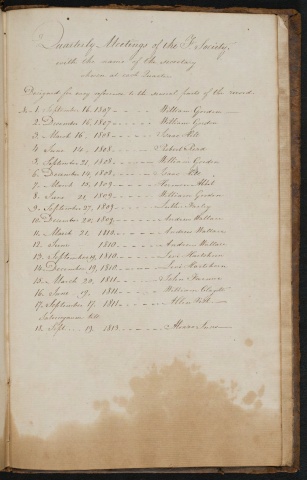 Quarterly Meetings of the F. Society,
with the name of the Secretary
chosen at each Quarter.
Designed for easy reference to the several parts of the record.
No. 1. September 16. 1807 - - - - William Gordon
2. December 16, 1807 - - - - William Gordon
3 March 16, 1808 - - - - Isaac Hill
4 June 14, 1808 - - - - Robert Read
5. September 21, 1808 - - - - William Gordon
6. December 14, 1808 - - - - Isaac Hill
7. March 15, 1809 - - - - Herman Abbot
8. June 21, 1809 - - - - William Gordon
9. September 27, 1809 - - - - Luther
10. December 20, 1809 - - - - Andrew Wallace
11. March 21, 1810 - - - - Andrew Wallace
12. June 1810 - - - - Andrew Wallace
13. September 19, 1810 - - - - Levi
14. December 19, 1810 - - - - Levi
15. March 20, 1811 - - - - John
16. June 19, 1811 - - - - William
17. September 17, 1811 - - - -
18. Sept. 13 1813 - - - -